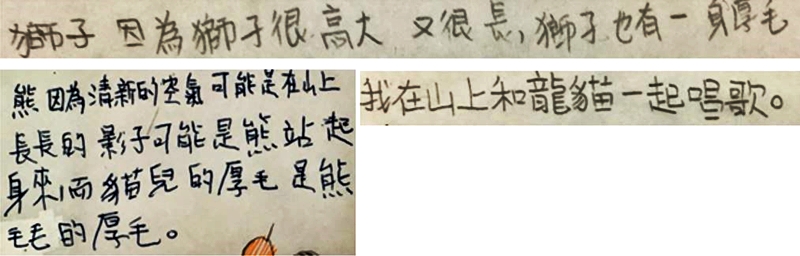 獅子 因為獅子很高大 又很長，獅子也有一身厚毛
熊 因為清新的空氣可能是在山上
長長的影子可能是熊站起
身來，而貓兒的厚毛是熊
毛毛的厚毛。
我在山上和龍貓一起唱歌。